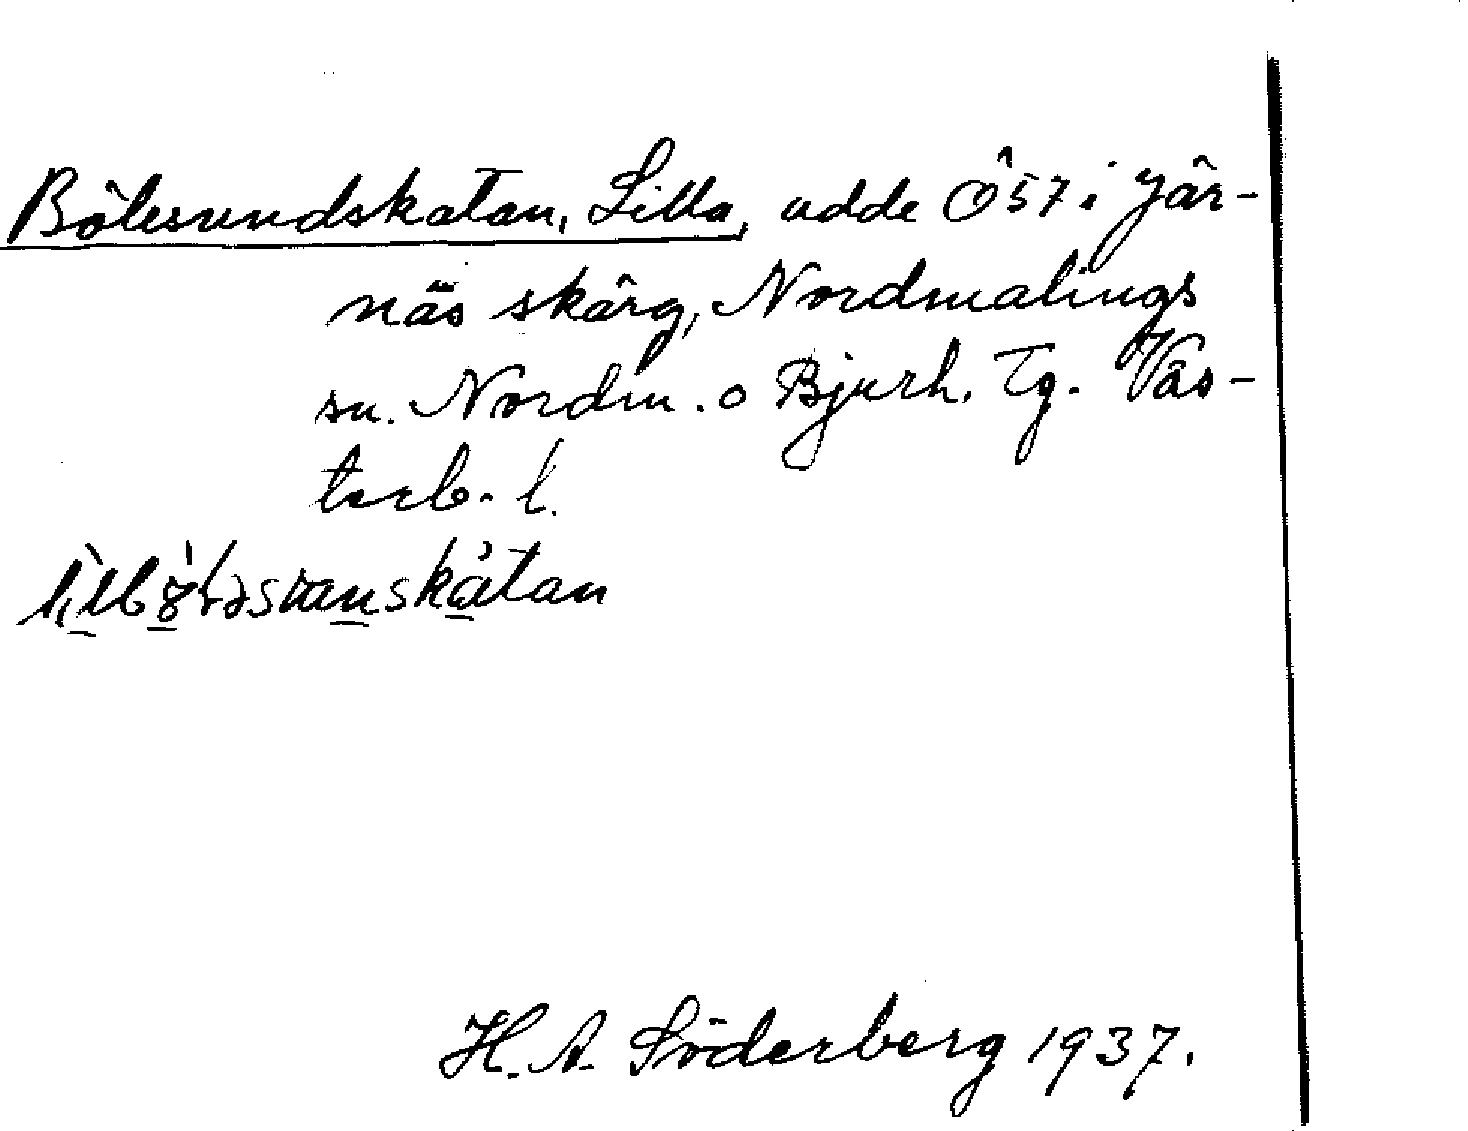 Bölesundskatan, Lilla, udde Ö57 i Jär-
näs skärg, Nordmalings
sn. Nordm. o Bjurh. Tg. Väs-
terb. l.
H. A. Söderberg 1937.